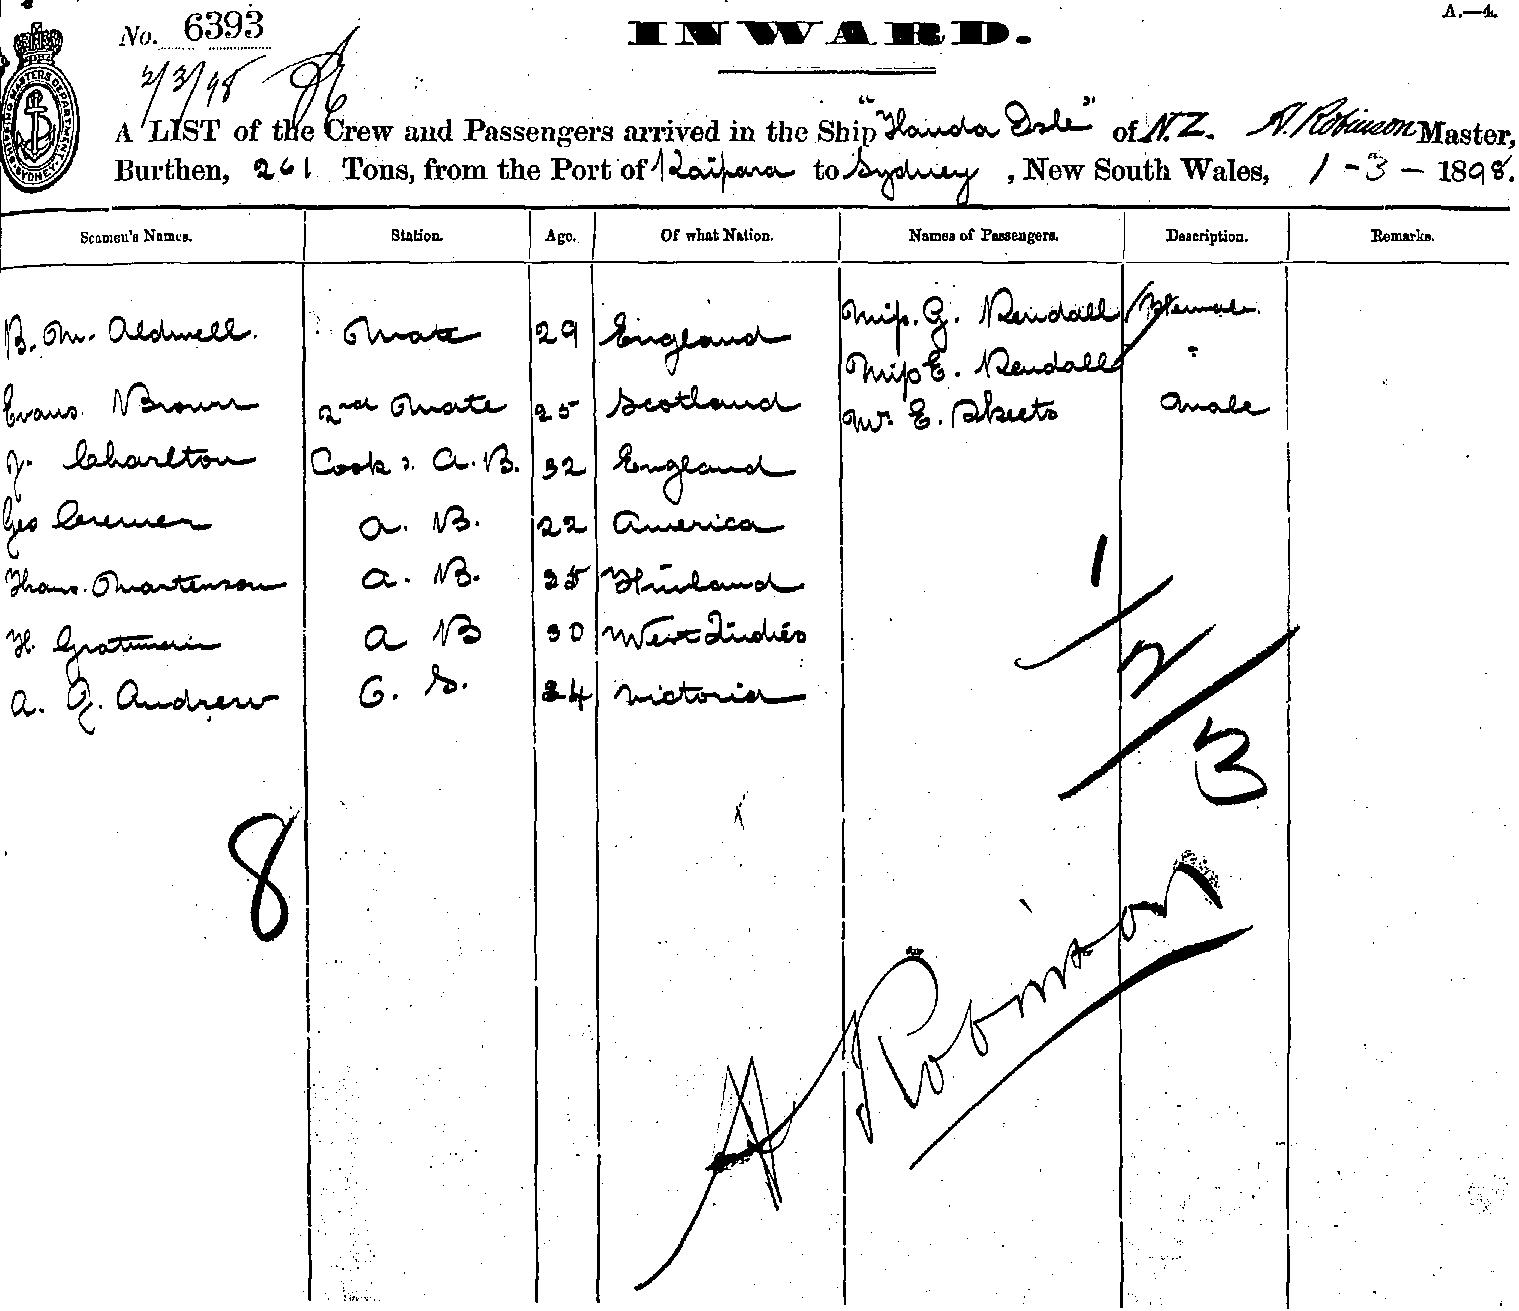 A.—4.
No. 6393
INWARD.
2/3/98
SHIPPING MASTERS DEPARTMENT SYDNEY
A LIST of the Crew and Passengers arrived in the Ship "Handa Isle" of N.Z. A. Robinson Master,
Burthen, 261 Tons, from the Port of Kaipara to Sydney, New South Wales, 1-3-1898.
Seamen's Names. Station. Age. Of what Nation. Names of Passengers. Description. Remarks.
B. M. Aldwell. Mate 29 England Miss. G. Rendall Female
Miss E. Rendall "
Evans. Brown 2nd Mate 25 Scotland Mr. E. Skeets Male
J. Charlton Cook & A.B. 32 England
Geo Cremer A. B. 22 America
Hans. Martenson A. B. 25 Finland
H. A B 30 West Indies
A. J. Andrew O. S. 24 Victoria
1
2
3
8
A Robinson